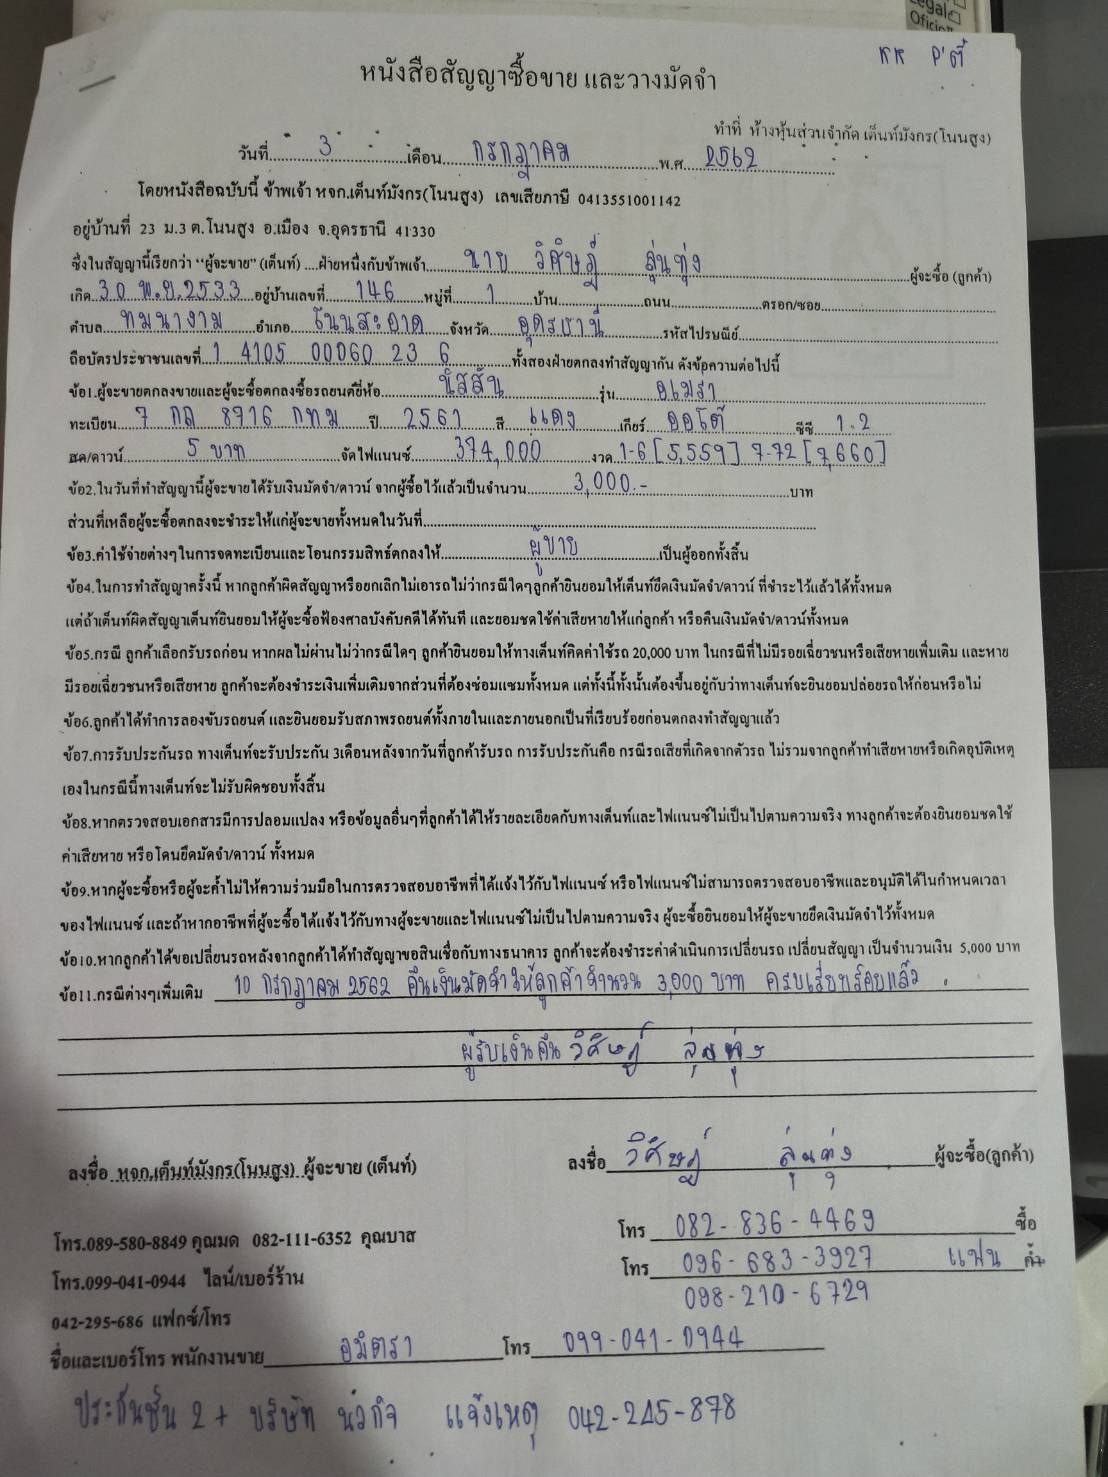 Legal
KK P'ตี๋
หนังสือสัญญาซื้อขาย และวางมัดจำ
ทำที่ ห้างหุ้นส่วนจำกัด เต็นท์มังกร(โนนสูง)
วันที่ 3 เดือน กรกฎาคม พ.ศ. 2562
โดยหนังสือฉบับนี้ ข้าพเจ้า หจก.เต็นท์มังกร(โนนสูง) เลขเสียภาษี 0413551001142
อยู่บ้านที่ 23 ม.3 ต.โนนสูง อ.เมือง จ.อุดรธานี 41330
ซึ่งในสัญญานี้เรียกว่า "ผู้จะขาย" (เต็นท์) ....ฝ่ายหนึ่งกับข้าพเจ้า นาย วิศิษฎ์ ลุ่นทุ่ง ผู้จะซื้อ (ลูกค้า)
เกิด 30 พ.ย. 2533 อยู่บ้านเลขที่ 146 หมู่ที่ 1 บ้าน ถนน ตรอก/ซอย
ตำบล ทมนางาม อำเภอ โนนสะอาด จังหวัด อุดรธานี รหัสไปรษณีย์
ถือบัตรประชาชนเลขที่ 1 4105 00060 23 6 ทั้งสองฝ่ายตกลงทำสัญญากัน ดังข้อความต่อไปนี้
ข้อ1.ผู้จะขายตกลงขายและผู้จะซื้อตกลงซื้อรถยนต์ยี่ห้อ นิสสัน รุ่น อเมรา
ทะเบียน 7 กถ 8716 กทม ปี 2561 สี แดง เกียร์ ออโต้ ซีซี 1.2
สด/ดาวน์ 5 บาท จัดไฟแนนซ์ 374,000 งวด 1-6 [5,559] 7-72 [7,660]
ข้อ2.ในวันที่ทำสัญญานี้ผู้จะขายได้รับเงินมัดจำ/ดาวน์ จากผู้ซื้อไว้แล้วเป็นจำนวน 3,000.- บาท
ส่วนที่เหลือผู้จะซื้อตกลงจะชำระให้แก่ผู้จะขายทั้งหมดในวันที่
ข้อ3.ค่าใช้จ่ายต่างๆในการจดทะเบียนและโอนกรรมสิทธ์ตกลงให้ ผู้ขาย เป็นผู้ออกทั้งสิ้น
ข้อ4.ในการทำสัญญาครั้งนี้ หากลูกค้าผิดสัญญาหรือยกเลิกไม่เอารถไม่ว่ากรณีใดๆลูกค้ายินยอมให้เต็นท์ยึดเงินมัดจำ/ดาวน์ ที่ชำระไว้แล้วได้ทั้งหมด
แต่ถ้าเต็นท์ผิดสัญญาเต็นท์ยินยอมให้ผู้จะซื้อฟ้องศาลบังคับคดีได้ทันที และยอมชดใช้ค่าเสียหายให้แก่ลูกค้า หรือคืนเงินมัดจำ/ดาวน์ทั้งหมด
ข้อ5.กรณี ลูกค้าเลือกรับรถก่อน หากผลไม่ผ่านไม่ว่ากรณีใดๆ ลูกค้ายินยอมให้ทางเต็นท์คิดค่าใช้รถ 20,000 บาท ในกรณีที่ไม่มีรอยเฉี่ยวชนหรือเสียหายเพิ่มเติม และหาย
มีรอยเฉี่ยวชนหรือเสียหาย ลูกค้าจะต้องชำระเงินเพิ่มเติมจากส่วนที่ต้องซ่อมแซมทั้งหมด แต่ทั้งนี้ทั้งนั้นต้องขึ้นอยู่กับว่าทางเต็นท์จะยินยอมปล่อยรถให้ก่อนหรือไม่
ข้อ6.ลูกค้าได้ทำการลองขับรถยนต์ และยินยอมรับสภาพรถยนต์ทั้งภายในและภายนอกเป็นที่เรียบร้อยก่อนตกลงทำสัญญาแล้ว
ข้อ7.การรับประกันรถ ทางเต็นท์จะรับประกัน 3เดือนหลังจากวันที่ลูกค้ารับรถ การรับประกันคือ กรณีรถเสียที่เกิดจากตัวรถ ไม่รวมจากลูกค้าทำเสียหายหรือเกิดอุบัติเหตุ
เองในกรณีนี้ทางเต็นท์จะไม่รับผิดชอบทั้งสิ้น
ข้อ8.หากตรวจสอบเอกสารมีการปลอมแปลง หรือข้อมูลอื่นๆที่ลูกค้าได้ให้รายละเอียดกับทางเต็นท์และไฟแนนซ์ไม่เป็นไปตามความจริง ทางลูกค้าจะต้องยินยอมชดใช้
ค่าเสียหาย หรือโดนยึดมัดจำ/ดาวน์ ทั้งหมด
ข้อ9.หากผู้จะซื้อหรือผู้จะค้ำไม่ให้ความร่วมมือในการตรวจสอบอาชีพที่ได้แจ้งไว้กับไฟแนนซ์ หรือไฟแนนซ์ไม่สามารถตรวจสอบอาชีพและอนุมัติได้ในกำหนดเวลา
ของไฟแนนซ์ และถ้าหากอาชีพที่ผู้จะซื้อได้แจ้งไว้กับทางผู้จะขายและไฟแนนซ์ไม่เป็นไปตามความจริง ผู้จะซื้อยินยอมให้ผู้จะขายยึดเงินมัดจำไว้ทั้งหมด
ข้อ10.หากลูกค้าได้ขอเปลี่ยนรถหลังจากลูกค้าได้ทำสัญญาขอสินเชื่อกับทางธนาคาร ลูกค้าจะต้องชำระค่าดำเนินการเปลี่ยนรถ เปลี่ยนสัญญา เป็นจำนวนเงิน 5,000 บาท
ข้อ11.กรณีต่างๆเพิ่มเติม 10 กรกฎาคม 2562 คืนเงินมัดจำให้ลูกค้าจำนวน 3,000 บาท ครบเรียบร้อยแล้ว.
ผู้รับเงินคืน วิศิษฎ์ ลุ่นทุ่ง
ลงชื่อ หจก.เต็นท์มังกร(โนนสูง) ผู้จะขาย (เต็นท์) ลงชื่อ วิศิษฎ์ ลุ่นทุ่ง ผู้จะซื้อ(ลูกค้า)
โทร.089-580-8849 คุณมด 082-111-6352 คุณบาส โทร 082-836-4469 ซื้อ
โทร.099-041-0944 ไลน์/เบอร์ร้าน โทร 096-683-3927 แฟน ค้ำ
098-210-6729
042-295-686 แฟกซ์/โทร
ชื่อและเบอร์โทร พนักงานขาย อมิตรา โทร 099-041-0944
ประกันชั้น 2+ บริษัท นวกิจ แจ้งเหตุ 042-245-878